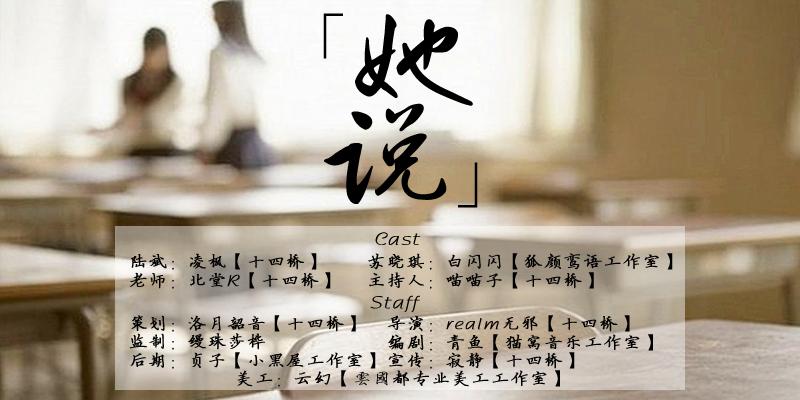 「她
说」
Cast
陆斌：凌枫【十四桥】 苏晓琪：白闪闪【狐颜鸾语工作室】
老师：北堂R【十四桥】 主持人：喵喵子【十四桥】
Staff
策划：洛月韶音【十四桥】 导演：realm无邪【十四桥】
监制：缦珠莎桦 编剧：青鱼【猫窝音乐工作室】
后期：贞子【小黑屋工作室】 宣传：寂静【十四桥】
美工：云幻【雲國都专业美工工作室】